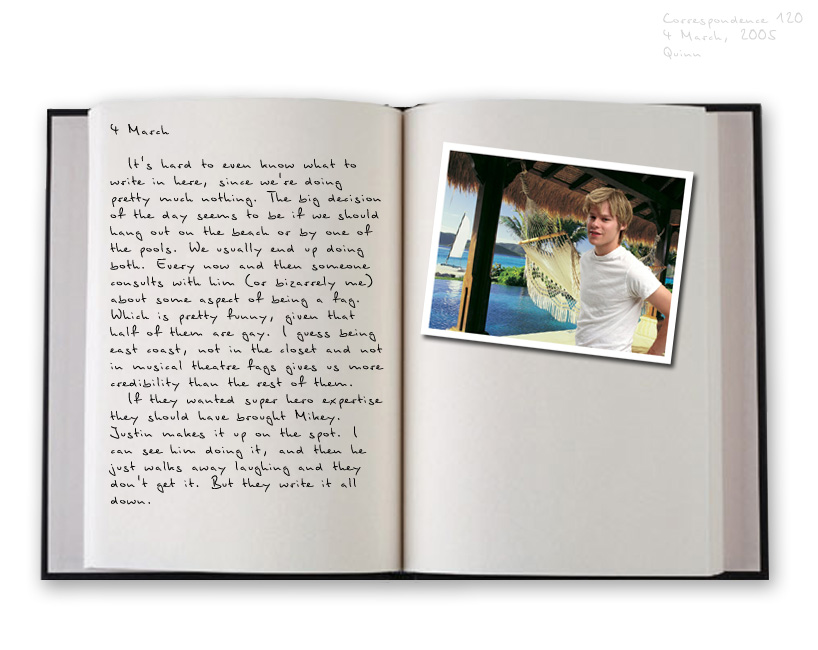 Correspondence 120
4 March, 2005
Quinn
4 March
It's hard to even know what to
write in here, since we're doing
pretty much nothing. The big decision
of the day seems to be if we should
hang out on the beach or by one of
the pools. We usually end up doing
both. Every now and then someone
consults with him (or bizarrely me)
about some aspect of being a fag.
Which is pretty funny, given that
half of them are gay. I guess being
east coast, not in the closet and not
in musical theatre fags gives us more
credibility than the rest of them.
If they wanted super hero expertise
they should have brought Mikey.
Justin makes it up on the spot. I
can see him doing it, and then he
just walks away laughing and they
don't get it. But they write it all
down.